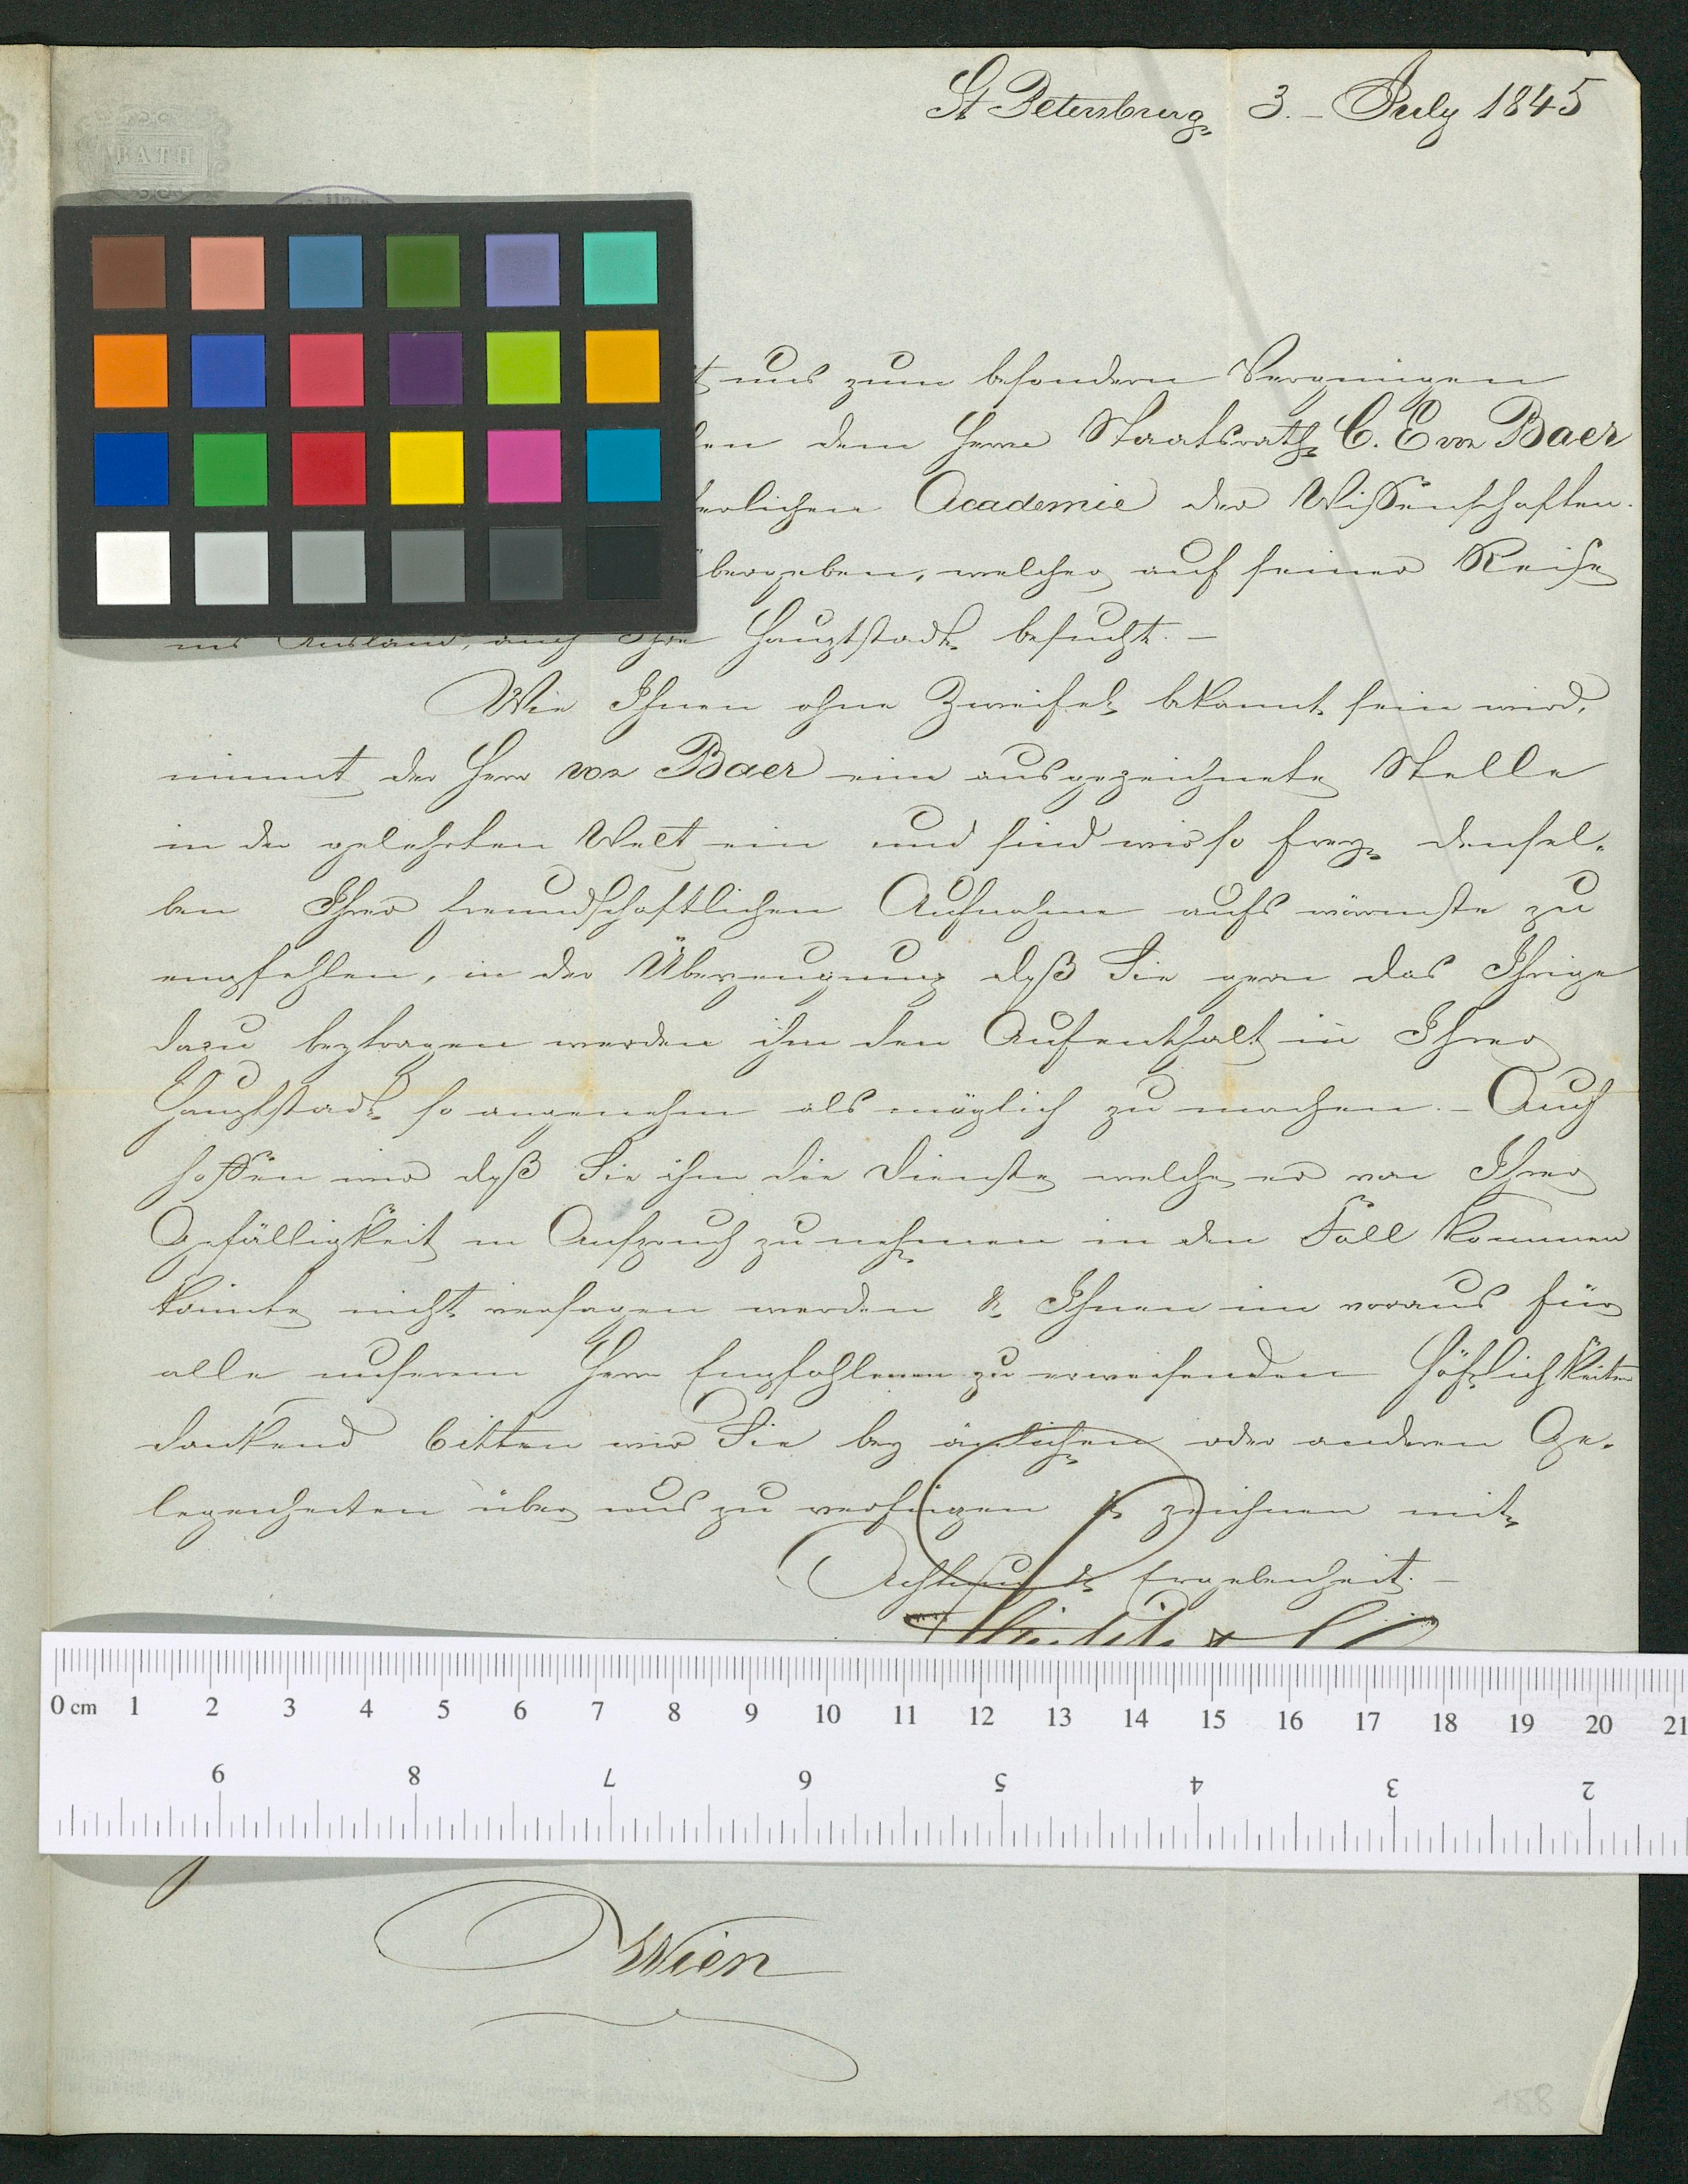 St Petersburg 3. – July 1845
BATH
uns zum besondern Vergnügen
dem Herrn Staatsrath C. E von Baer
Academie der Wissenschaften.
welcher auf seiner Reise
ins Ausland, auch Ihre Hauptstadt besucht. –
Wie Ihnen ohne Zweifel bekannt sein wird,
nimmt der Herr von Baer eine ausgezeichnete Stelle
in der gelehrten Welt ein und sind wir so frey densel-
ben Ihrer freundschaftlichen Aufnahme aufs wärmste zu
empfehlen, in der Überzeugung daß Sie gern das Ihrige
dazu beytragen werden ihm den Aufenthalt in Ihrer
Hauptstadt so angenehm als möglich zu machen. – Auch
hoffen wir daß Sie ihm die Dienste welche er von Ihrer
Gefälligkeit in Anspruch zu nehmen in den Fall kommen
könnte nicht versagen werden & Ihnen im voraus für
alle unserem Herrn Empfohlenen zu erweisenden Höflichkeiten
dankend bitten wir Sie bey änlichen oder anderen Ge-
legenheiten über uns zu verfügen & zeichnen mit
Achtung & Ergebenheit. –
0 cm 1 2 3 4 5 6 7 8 9 10 11 12 13 14 15 16 17 18 19 20 21
9 8 7 6 5 4 3 2
Wien
188